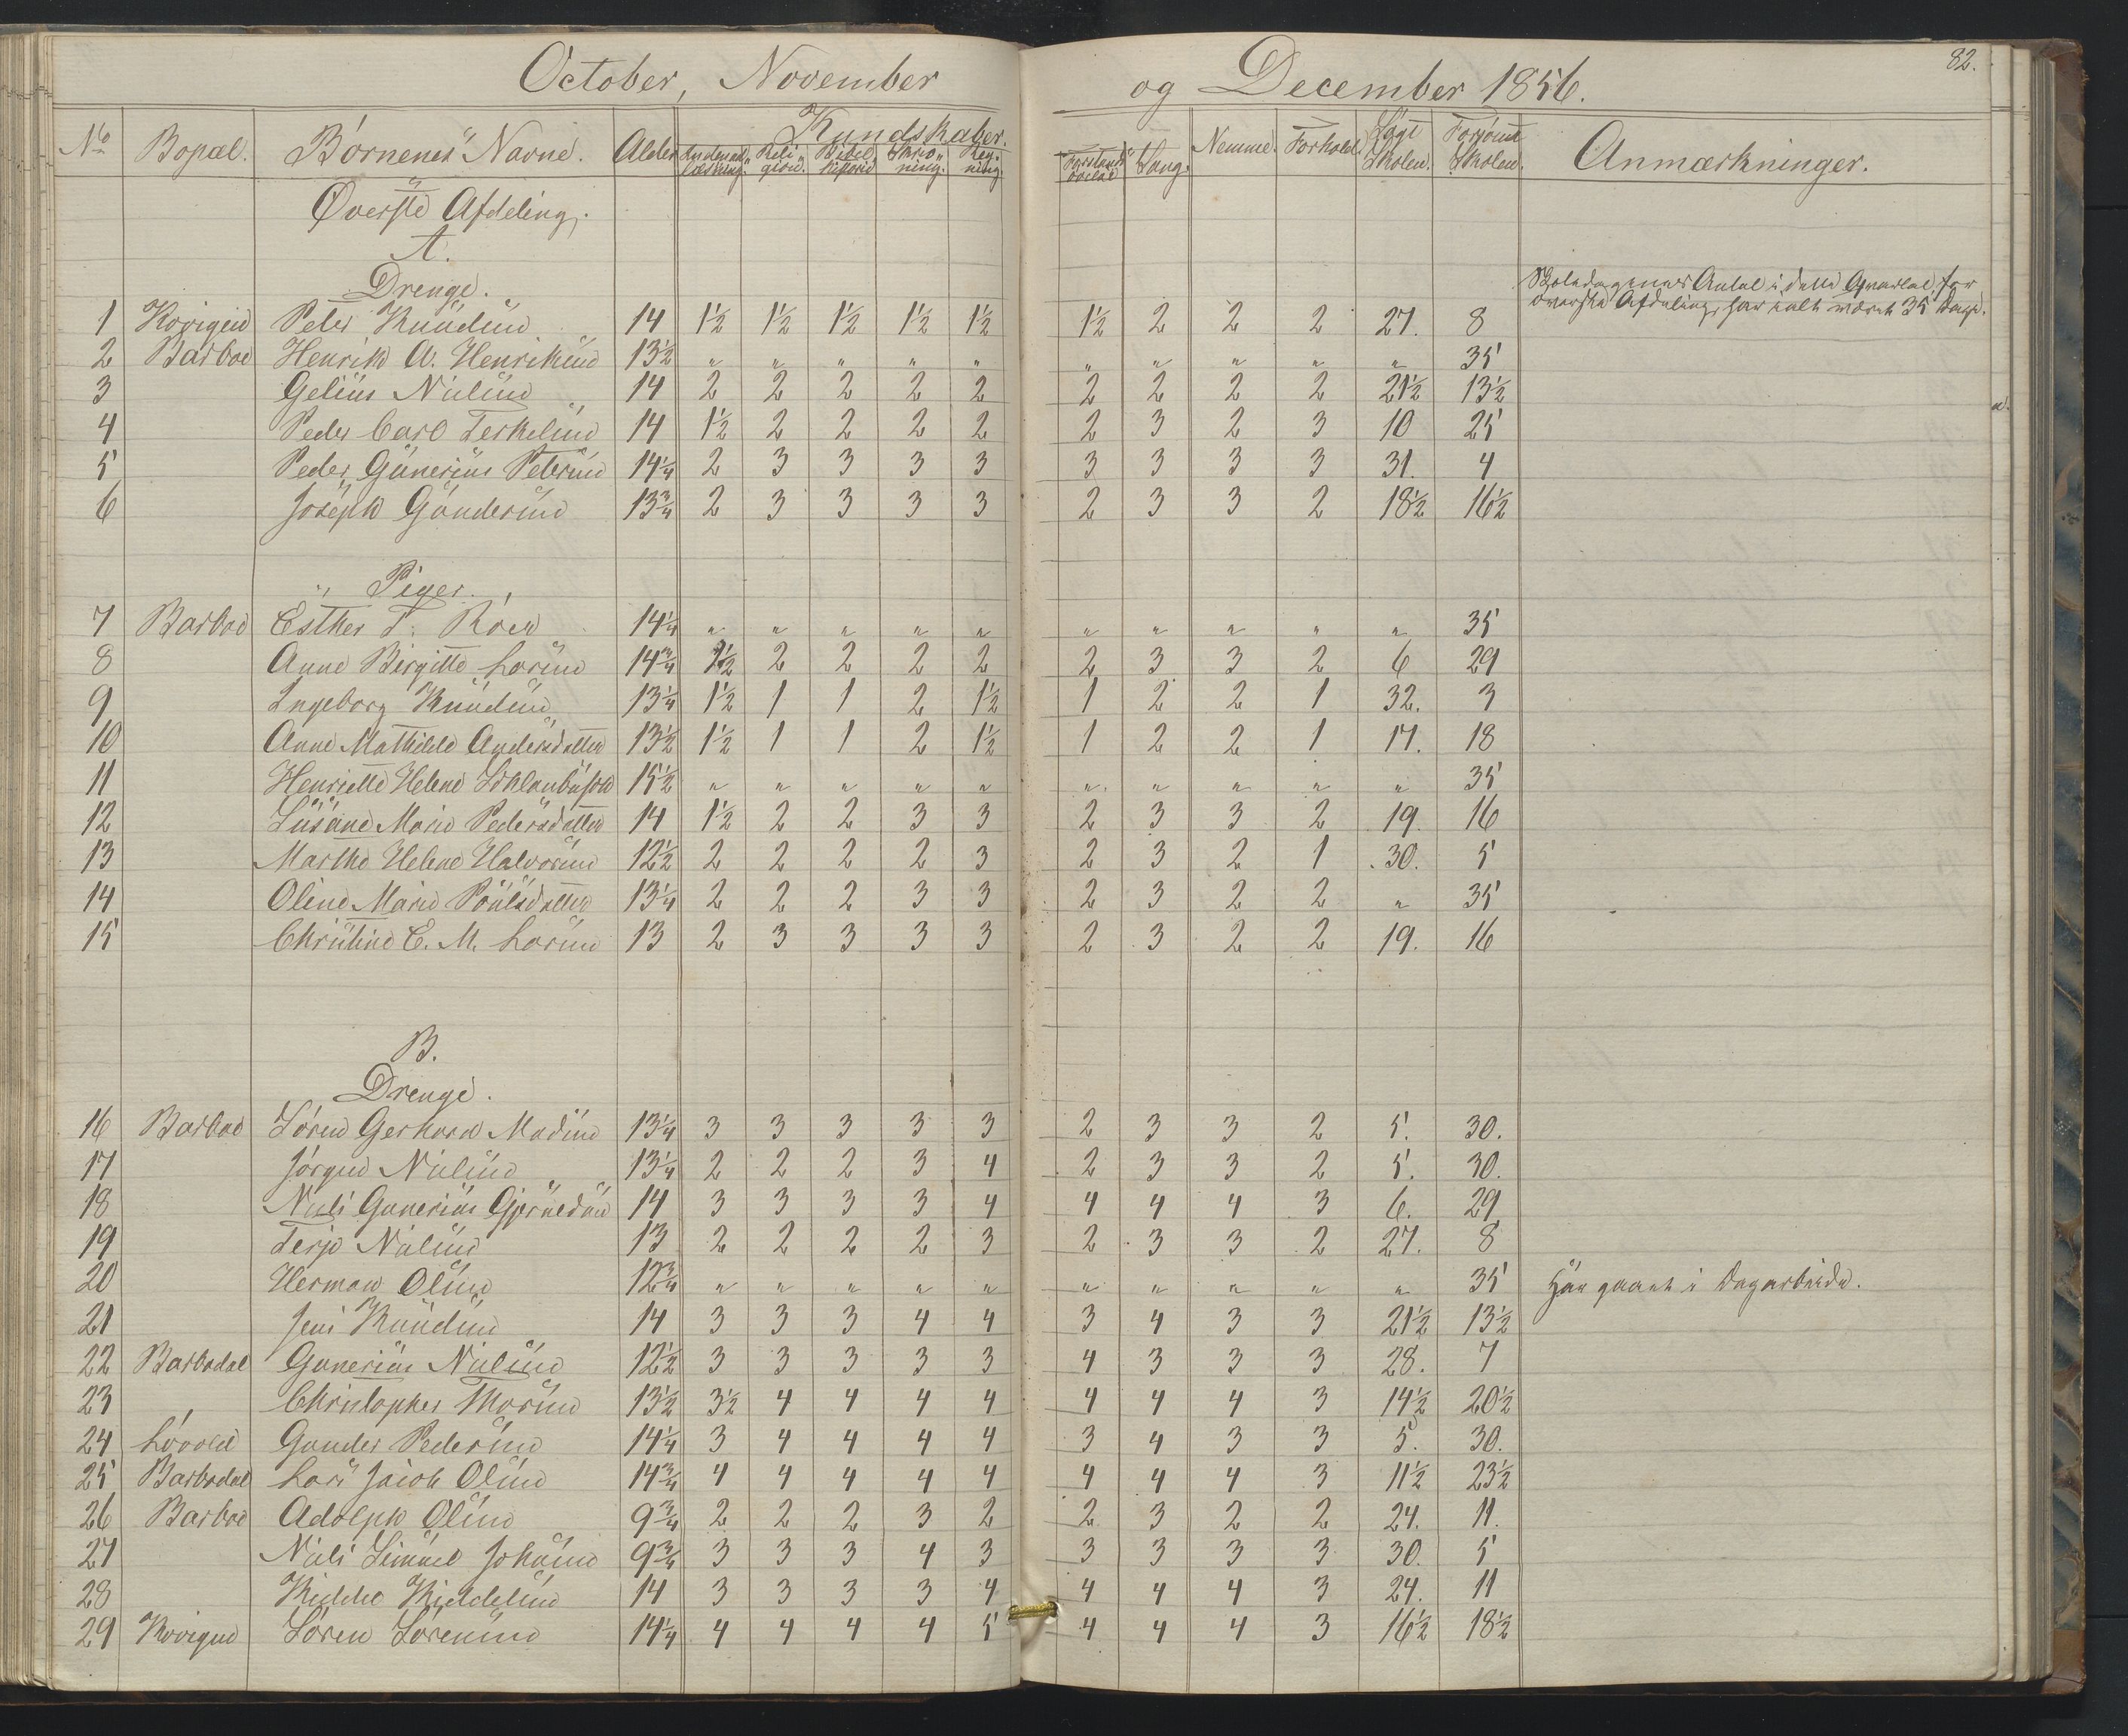 October, November og December 1856. 82.
No Bopæl. Börnenes Navne. Alder Kundskaber. Nemme. Forhold. Søgt Skolen. Forsømt Skolen. Anmærkninger.
Indenadlæsning. Religion. Bibelhistorie Skrivning. Regning. Forstandsøvelse Sang.
Øverste Afdeling.
A.
Drenge.
Skoledagenes Antal i dette Qvartal, for
øverste Afdeling, har ialt været 35 Dage.
1 Kovigen Peter Knudsen 14 1½ 1½ 1½ 1½ 1½ 1½ 2 2 2 27. 8
2 Barboe Henrik A. Henriksen 13½ " " " " " " " " " " 35
3 Gelius Nielsen 14 2 2 2 2 2 2 2 2 2 21½ 13½
4 Peder Carl Terkelsen 14 1½ 2 2 2 2 2 3 2 3 10 25
5 Peder Gunerius Petersen 14¼ 2 3 3 3 3 3 3 3 3 31. 4
6 Joseph Gundersen 13¾ 2 3 3 3 3 2 3 3 2 18½ 16½
Piger.
7 Barboe Esther T. Röen 14¼ " " " " " " " " " " 35
8 Anne Birgitte Larsen 14¾ 1½ 2 2 2 2 2 3 3 2 6 29
9 Ingeborg Knudsen 13¼ 1½ 1 1 2 1½ 1 2 2 1 32. 3
10 Anne Mathilde Andersdatter 13½ 1½ 1 1 2 1½ 1 2 2 1 17. 18
11 Henriette Helene 15½ " " " " " " " " " " 35
12 Susane Marie Pedersdatter 14 1½ 2 2 3 3 2 3 3 2 19. 16
13 Marthe Helene Halvorsen 12½ 2 2 2 2 3 2 3 2 1 30. 5
14 Oline Marie Poulsdatter 13¼ 2 2 2 3 3 2 3 2 2 " 35
15 Christine E. M. Larsen 13 2 3 3 3 3 2 3 2 2 19. 16
B.
Drenge.
16 Barboe Sören Gerhard Madsen 13¼ 3 3 3 3 3 2 3 3 2 5. 30.
17 Jörgen Nielsen 13¼ 2 2 2 3 4 2 3 3 2 5. 30.
18 Niels Gunerius 14 3 3 3 3 4 4 4 4 3 6. 29
19 Terje Nielsen 13 2 2 2 2 3 2 3 3 2 27. 8
20 Herman Olsen 12¾ " " " " " " " " " " 35 Har gaaet i Dagarbeide.
21 Jens Knudsen 14 3 3 3 4 4 3 4 3 3 21½ 13½
22 Barbodal Gunerius Nielsen 12½ 3 3 3 3 3 4 3 3 3 28. 7
23 Christopher Thorsen 13½ 3½ 4 4 4 4 4 4 4 3 14½ 20½
24 Lövold Gunder Pedersen 14¼ 3 4 4 4 4 3 4 3 3 5. 30.
25 Barbodal Lars Jacob Olsen 14¾ 4 4 4 4 4 4 4 4 3 11½ 23½
26 Barboe Adolph Olsen 9¾ 2 2 2 3 2 2 3 2 2 24. 11.
27 Niels Simuel Johnsen 9¾ 3 3 3 4 3 3 3 3 3 30. 5
28 Kiddel Kiddelsen 14 3 3 3 3 4 4 4 4 3 24. 11
29 Kovigen Sören Sörensen 14¼ 4 4 4 4 5 4 4 4 3 16½ 18½